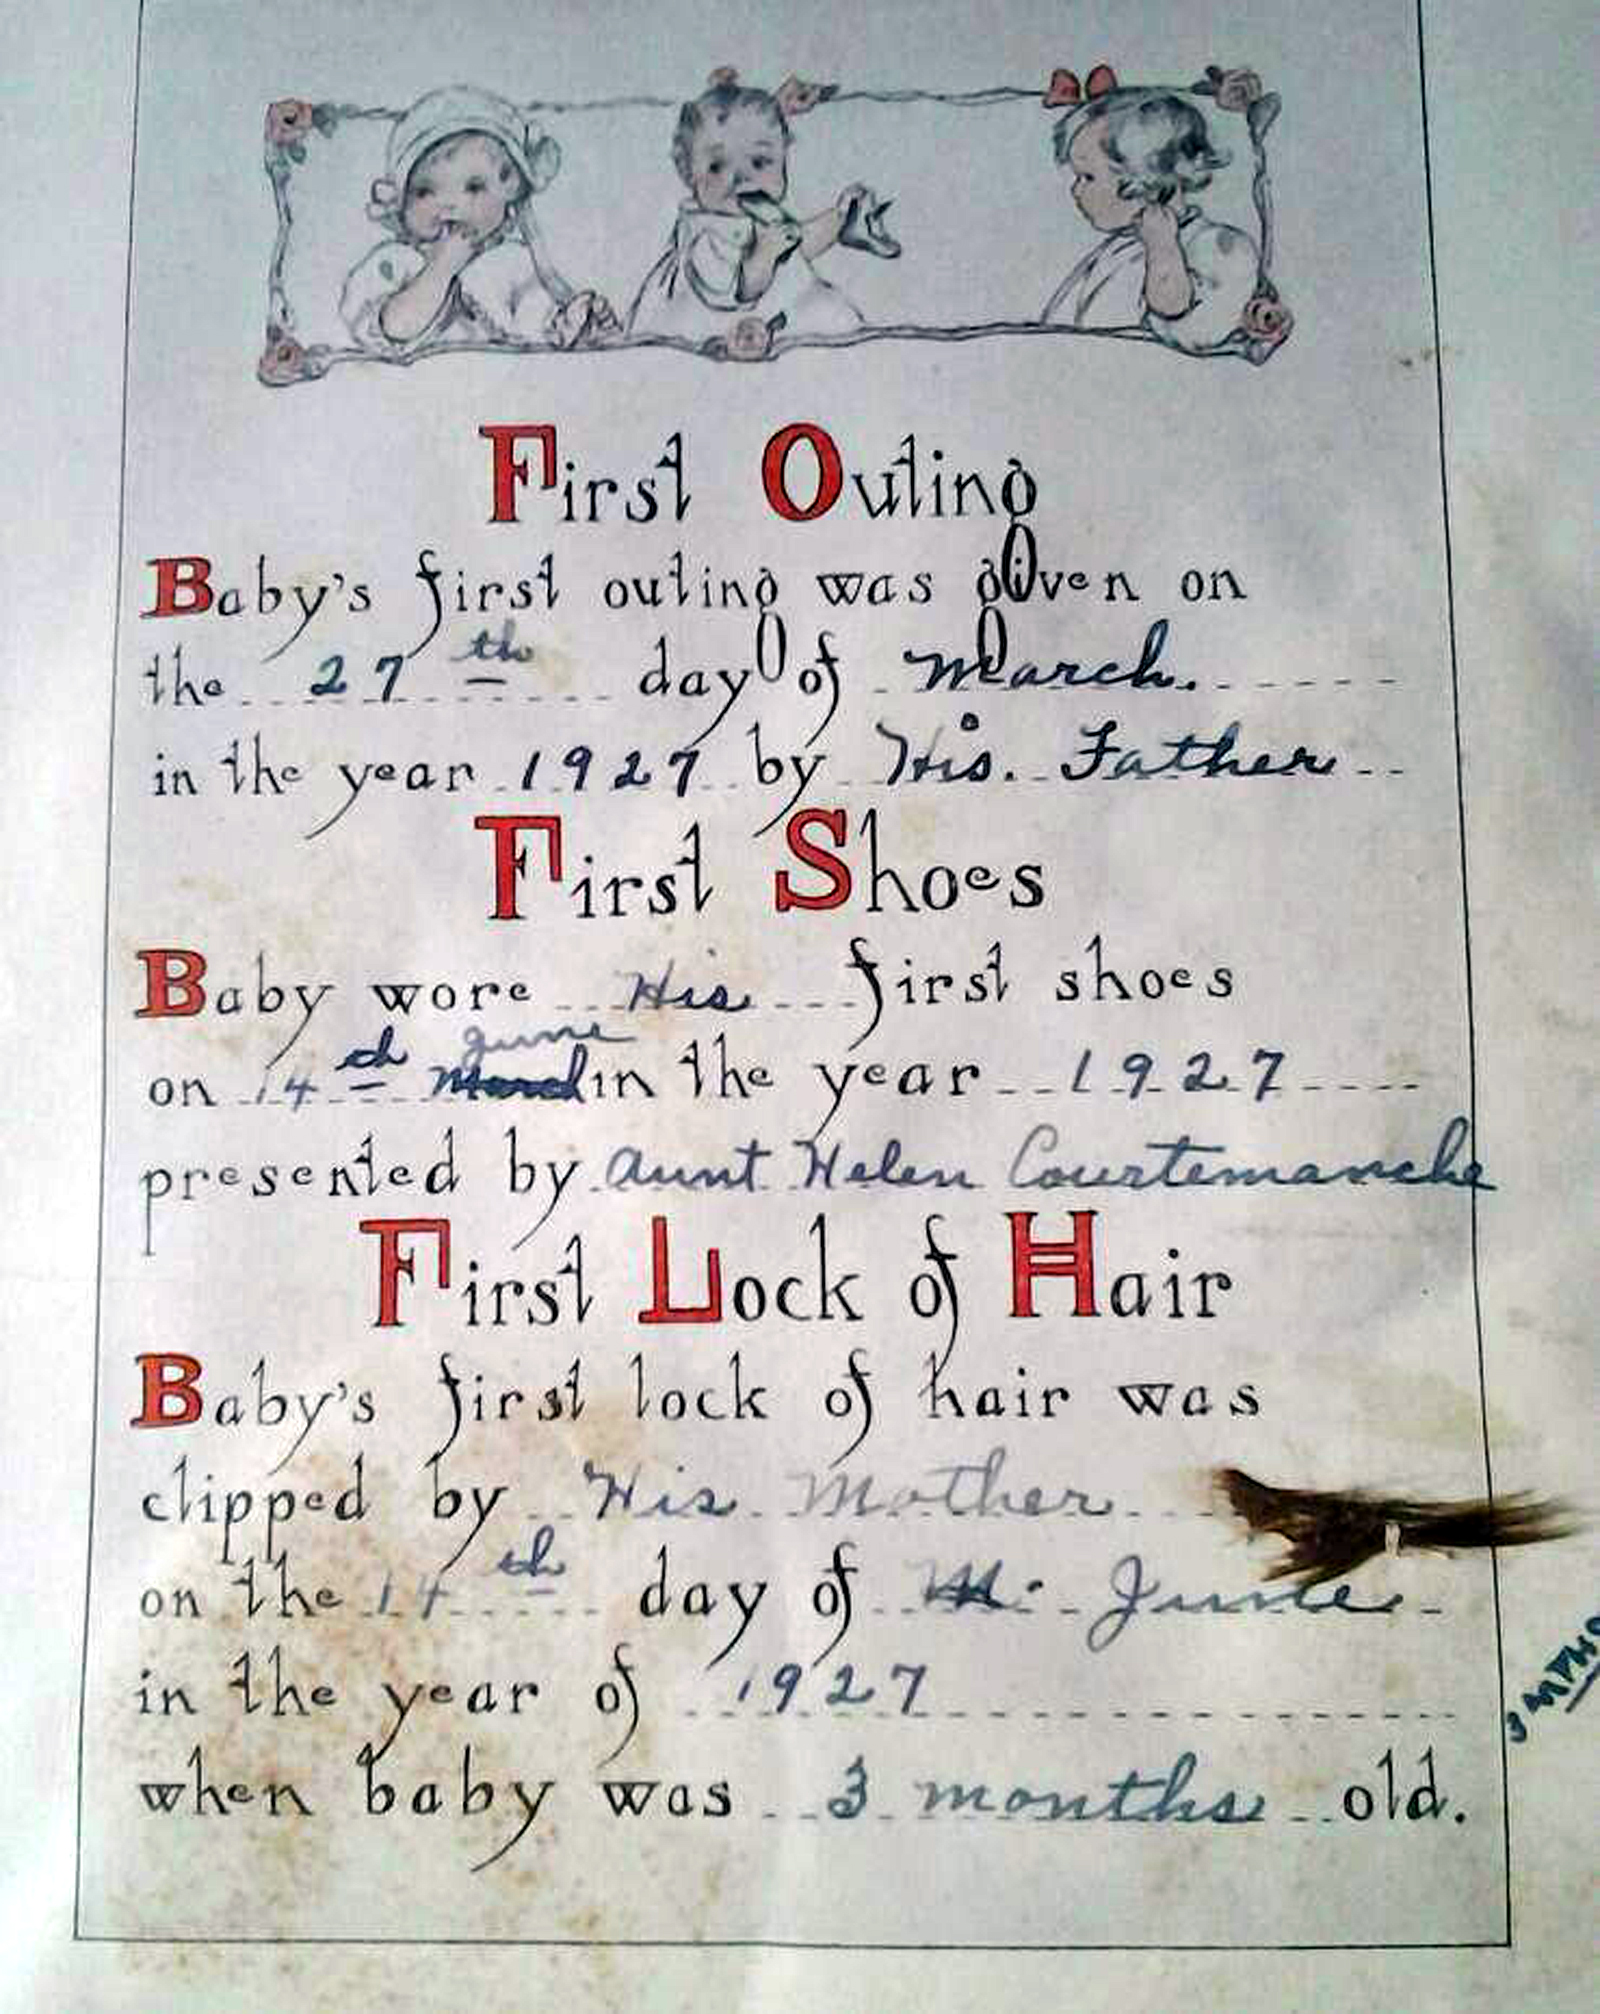 First Outing
Baby's first outing was given on
the 27th day of March.
in the year 1927 by His. Father
First Shoes
Baby wore His first shoes
on 14th March June in the year 1927
presented by Aunt Helen Courtemanche
First Lock of Hair
Baby's first lock of hair was
clipped by His Mother
on the 14th day of M. June
in the year of 1927
when baby was 3 months old.